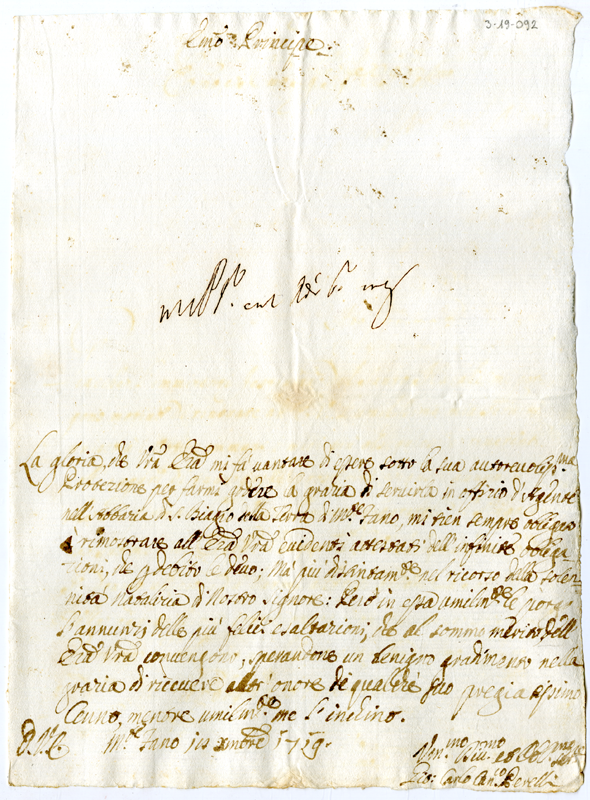 3-19-092
Em̃o Principe
La gloria, che Vr̃a Em̃a mi fà vantare di essere sotto la sua autorevoliss.ma
Protezione per farmi godere la grazia di servirla in officio di Agente
nell'Abbazia di S. Biagio nella Terra di M.te Fano, mi tien sempre obligato
à rimostrare all'Em̃a Vr̃a evidenti attestati dell'infinite obliga-
zioni, che le devo; Mà più distintam.te nel ricorso della solen-
nità natalizia di Nostro Signore: Però in essa umilm.te le porgo
l'annunzi delle più felici esaltazioni, che al sommo merito dell'
Em̃a Vr̃a convengono, sperandone un benigno gradimento nella
grazia di ricevere altri onore di qualche suo pregiatissimo
Cenno, mentre umilm.te me l'inchino.
D. V. E. M.te Fano 1719.
Um.mo
Gio: Carlo Can.co Perelli